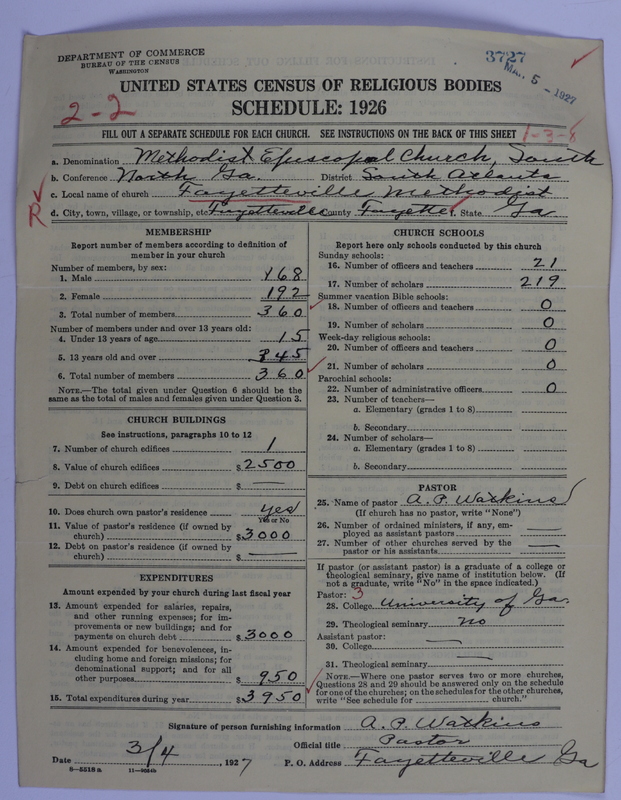 DEPARTMENT OF COMMERCE
BUREAU OF THE CENSUS
WASHINGTON
3727
MAR 5 - 1927
UNITED STATES CENSUS OF RELIGIOUS BODIES
2-2
SCHEDULE: 1926
FILL OUT A SEPARATE SCHEDULE FOR EACH CHURCH. SEE INSTRUCTIONS ON THE BACK OF THIS SHEET
1-3-8
a. Denomination Methodist Episcopal Church, South
b. Conference North Ga. District South Atlanta
c. Local name of church Fayetteville Methodist
R
d. City, town, village, or township, etc. Fayetteville County Fayette f. State Ga
MEMBERSHIP
Report number of members according to definition of
member in your church
Number of members, by sex:
1. Male 168
2. Female 192
3. Total number of members 360
Number of members under and over 13 years old:
4. Under 13 years of age 15
5. 13 years old and over 345
6. Total number of members 360
NOTE.—The total given under Question 6 should be
same as the total of males and females given under Question 3.
CHURCH BUILDINGS
See instructions, paragraphs 10 to 12
7. Number of church edifices 1
8. Value of church edifices $2500
9. Debt on church edifices $ —
10. Does church own pastor's residence yes
Yes or No
11. Value of pastor's residence (if owned by
church) $3000
12. Debt on pastor's residence (if owned by
church) $ —
EXPENDITURES
Amount expended by your church during last fiscal year
13. Amount expended for salaries, repairs,
and other running expenses; for im-
provements or new buildings; and for
payments on church debt $3000
14. Amount expended for benevolences, in-
cluding home and foreign missions; for
denominational support; and for all
other purposes $950
15. Total expenditures during year $3950
CHURCH SCHOOLS
Report here only schools conducted by this church
Sunday schools:
16. Number of officers and teachers 21
17. Number of scholars 219
Summer vacation Bible schools:
18. Number of officers and teachers 0
19. Number of scholars 0
Week-day religious schools:
20. Number of officers and teachers 0
21. Number of scholars 0
Parochial schools:
22. Number of administrative officers 0
23. Number of teachers—
a. Elementary (grades 1 to 8)
b. Secondary
24. Number of scholars—
a. Elementary (grades 1 to 8)
b. Secondary
PASTOR
25. Name of pastor A. P. Watkins
(If church has no pastor, write "None")
26. Number of ordained ministers, if any, em-
ployed as assistant pastors —
27. Number of other churches served by the
pastor or his assistants —
If pastor (or assistant pastor) is a graduate of a college or
theological seminary, give name of institution below. (If
not a graduate, write "No" in the space indicated.)
Pastor: 3
28. College University of Ga.
29. Theological seminary no
Assistant pastor:
30. College —
31. Theological seminary —
NOTE.—Where one pastor serves two or more churches,
Questions 28 and 29 should be answered only on the schedule
for one of the churches; on the schedules for the other churches,
write "See schedule for church."
Signature of person furnishing information A. P. Watkins
Official title Pastor
Date 3/4, 1927 P. O. Address Fayetteville Ga
8—5518a 11—9024b